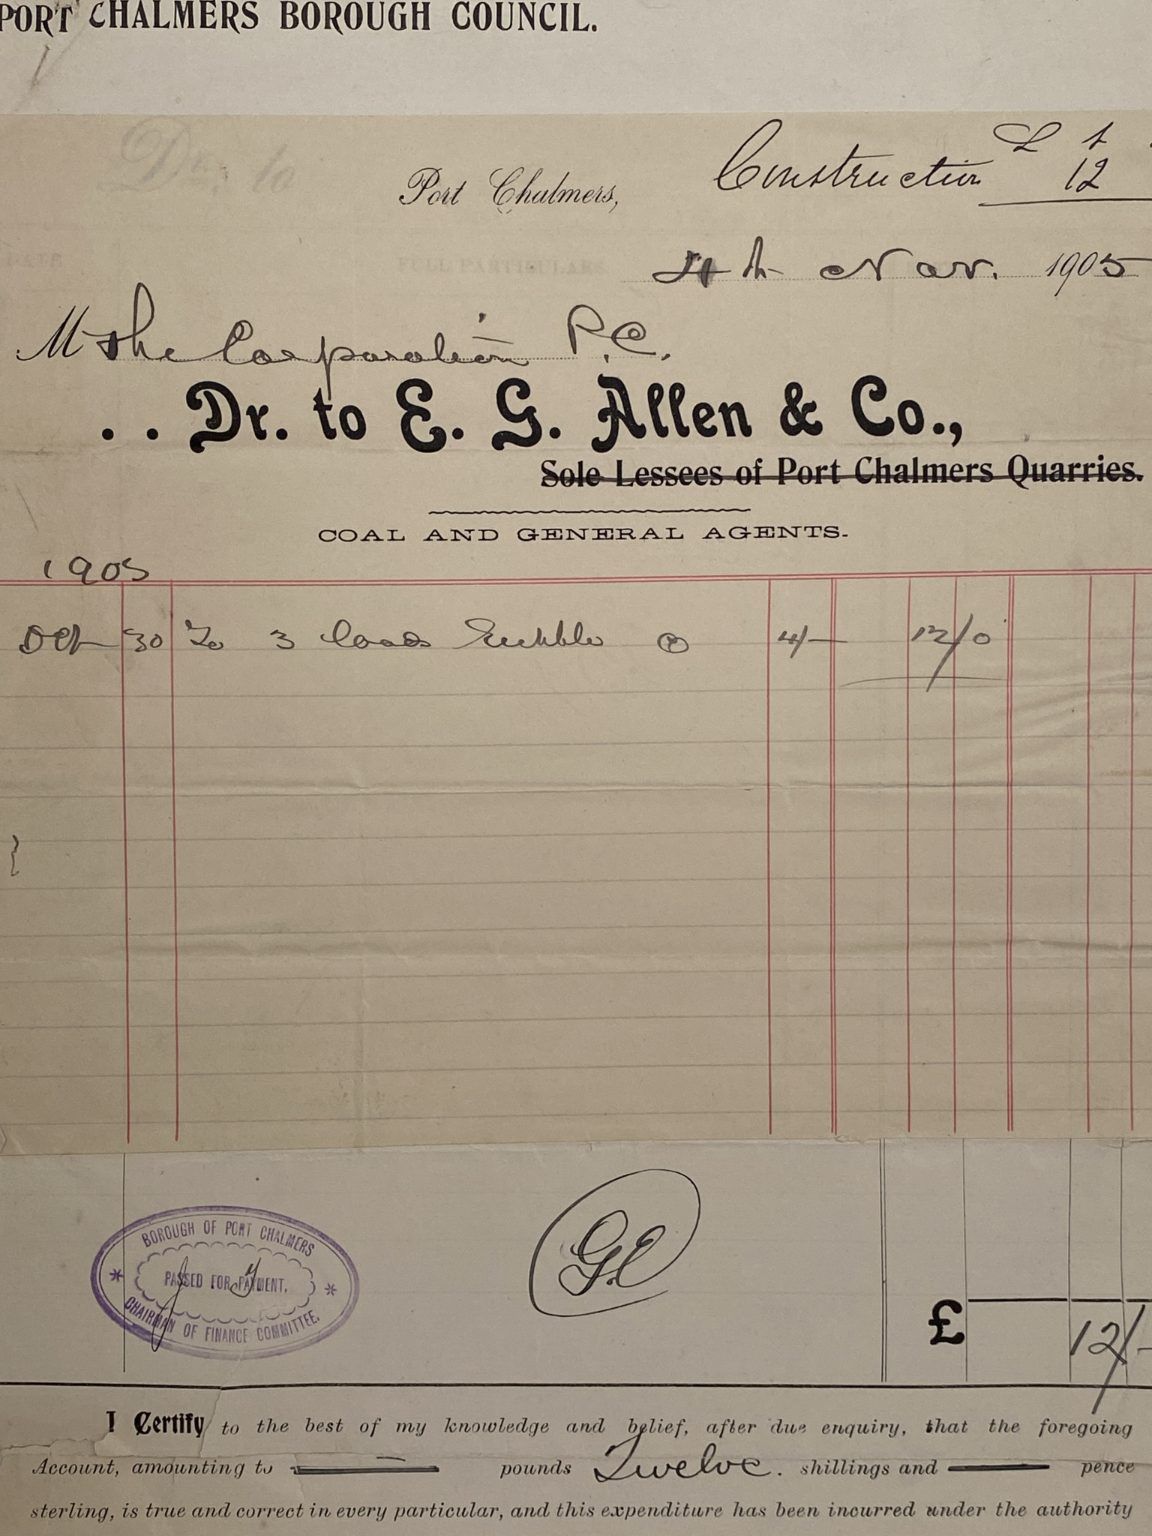 PORT CHALMERS BOROUGH COUNCIL.
Dr. to
£ s
Port Chalmers, Construction 12
4th Nov. 1905
DATE FULL PARTICULARS
M the Corporation P.C.
. . Dr. to E. G. Allen & Co.,
Sole Lessees of Port Chalmers Quarries.
COAL AND GENERAL AGENTS.
1905
Oct 30 To 3 loads Rubble @ 4/- 12/0
BOROUGH OF PORT CHALMERS
PASSED FOR PAYMENT.
CHAIRMAN OF FINANCE COMMITTEE.
£ 12/-
I Certify to the best of my knowledge and belief, after due enquiry, that the foregoing
Account, amounting to — pounds Twelve. shillings and — pence
sterling, is true and correct in every particular, and this expenditure has been incurred under the authority